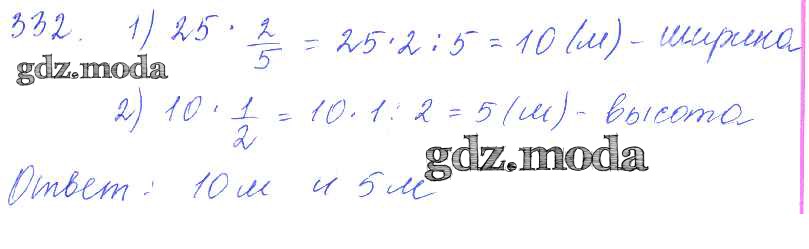 332. 1) 25 · 2/5 = 25·2:5 = 10 (м) - ширина
gdz.moda
2) 10 · 1/2 = 10·1:2 = 5 (м) - высота
gdz.moda
Ответ: 10 м и 5 м